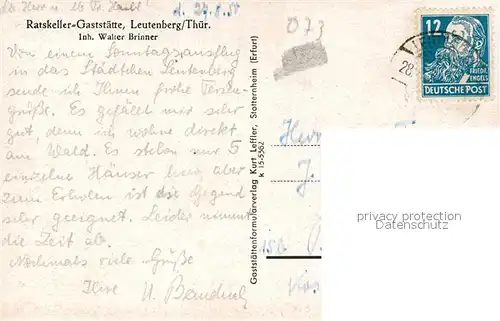 d. 27.8.50
Ratskeller-Gaststätte, Leutenberg/Thür.
Inh. Walter Brinner
Von einem Sonntagsausflug
in das Städtchen Leutenberg
sende ich Ihnen frohe
grüße. Es gefällt mir sehr
gut, denn ich wohne direkt
am Wald. Es stehen nur 5
einzelne Häuser hier, aber
zum Erholen ist die Gegend
sehr geeignet. Leider nimmt
die Zeit ab.
Nochmals viele Grüße
Ilse
Gaststättenformularverlag Kurt Leffler, Stotternheim (Erfurt)
k 15-5562
073
12
FRIEDR.
ENGELS
DEUTSCHE POST
28.
privacy protection
Datenschutz